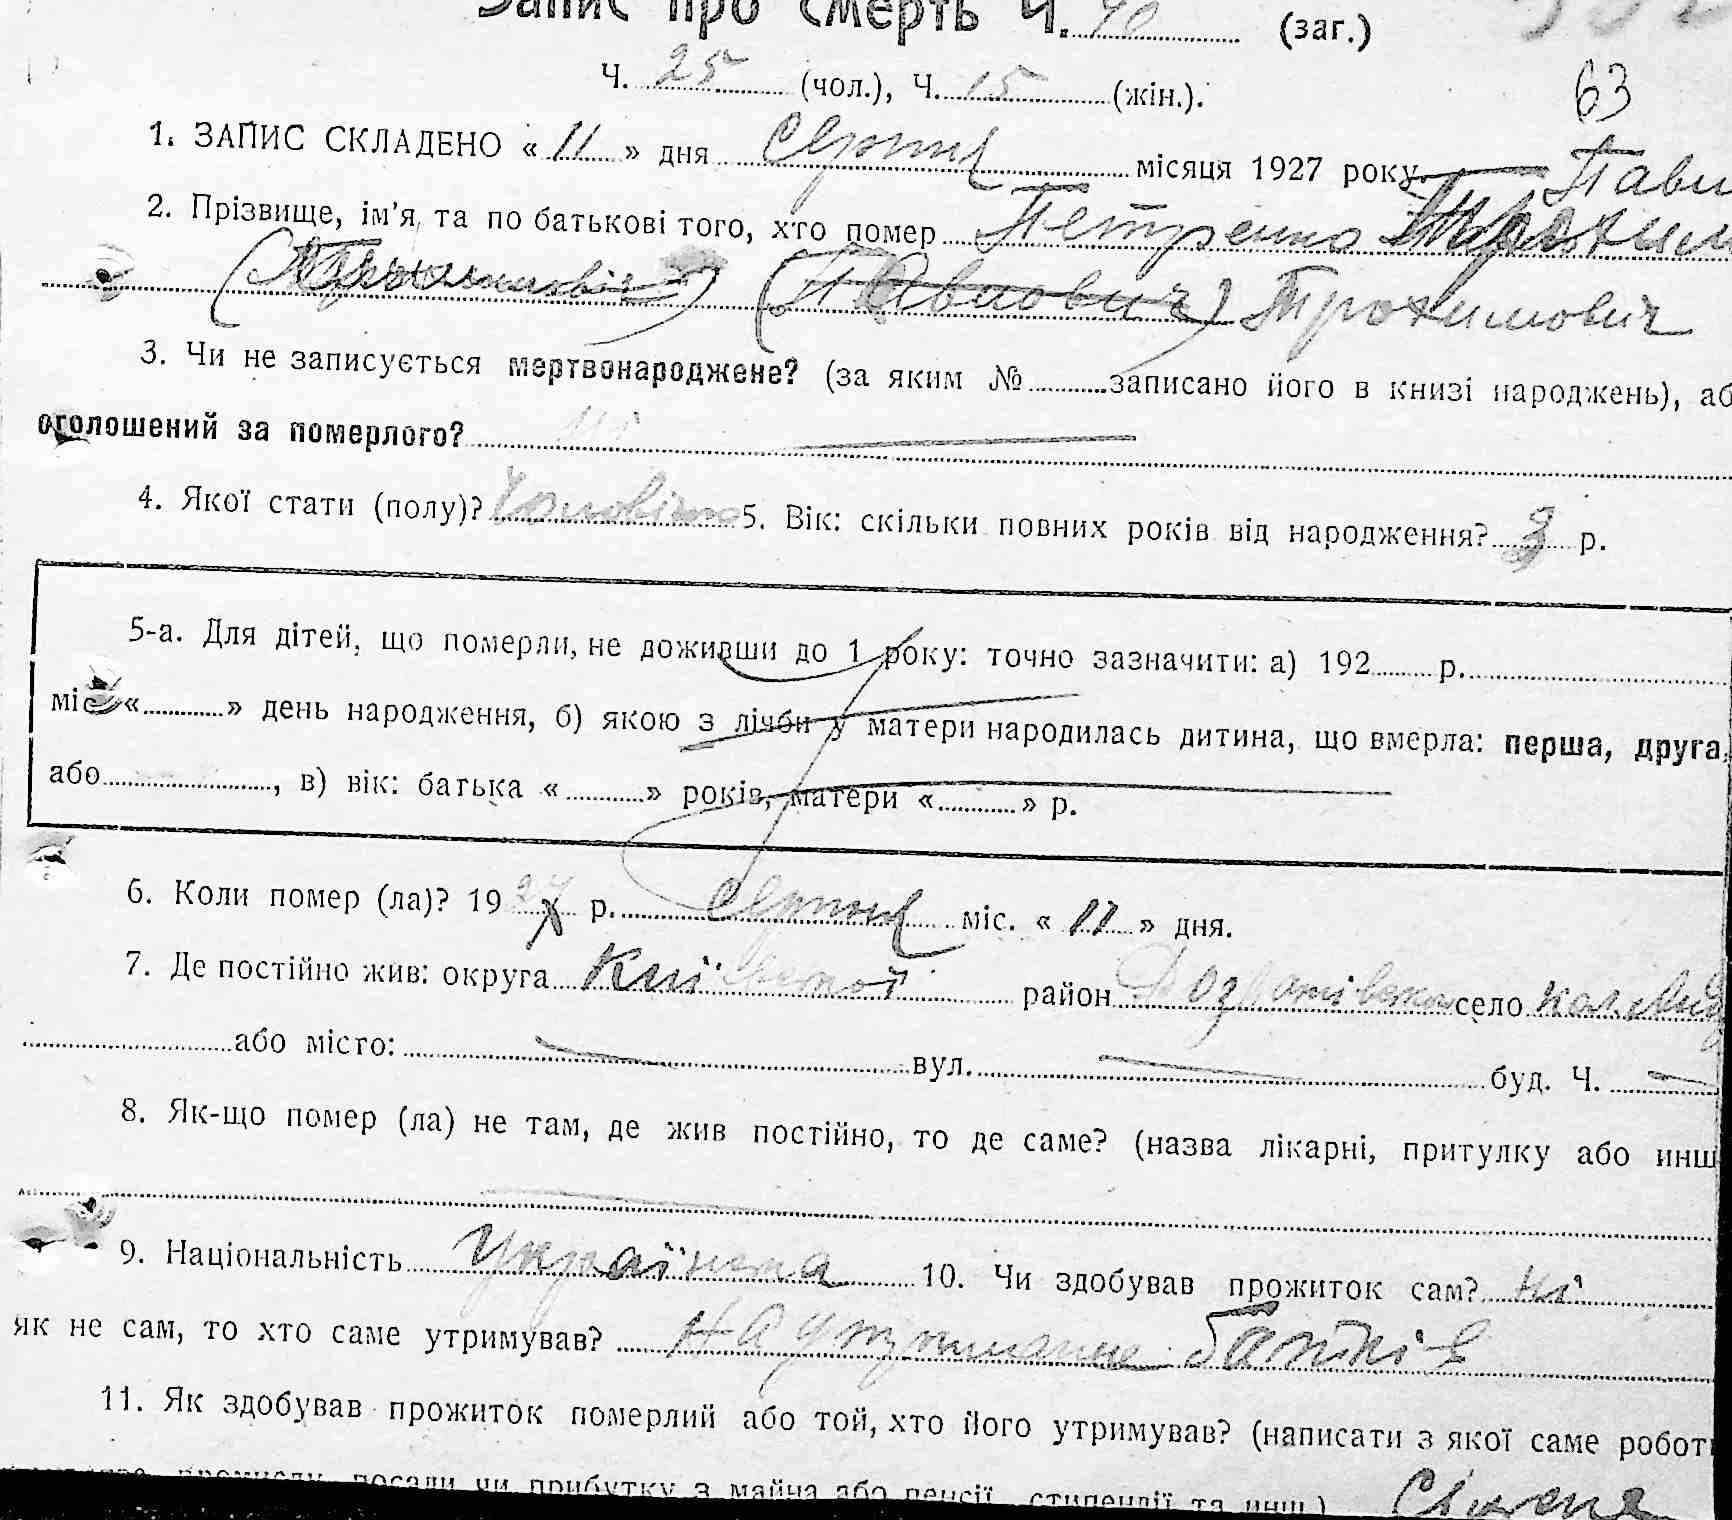 Запис про смерть Ч. 40 (заг.)
Ч. 25 (чол.), Ч. 15 (жін.).
63
1. ЗАПИС СКЛАДЕНО « 11 » дня Серпня місяця 1927 року.
Павл
2. Прізвище, ім'я та по батькові того, хто помер Петренко
(Павлович) Трохимович
3. Чи не записується мертвонароджене? (за яким № записано його в книзі народжень), аб
оголошений за померлого?
4. Якої стати (полу)? Чоловічої 5. Вік: скільки повних років від народження? 3 р.
5-а. Для дітей, що померли, не доживши до 1 року: точно зазначити: а) 192 р.
міс « » день народження, б) якою з лічби у матери народилась дитина, що вмерла: перша, друга,
або , в) вік: батька « » років, матери « » р.
6. Коли помер (ла)? 1927 р. Серпня міс. « 11 » дня.
7. Де постійно жив: округа Київської район село
або місто: вул. буд. Ч.
8. Як-що помер (ла) не там, де жив постійно, то де саме? (назва лікарні, притулку або инш
9. Національність Українська 10. Чи здобував прожиток сам? ні
як не сам, то хто саме утримував? На утриманні батьків
11. Як здобував прожиток померлий або той, хто його утримував? (написати з якої саме робот
промислу, посади чи прибутку з майна або пенсії, стипендії та инш.)